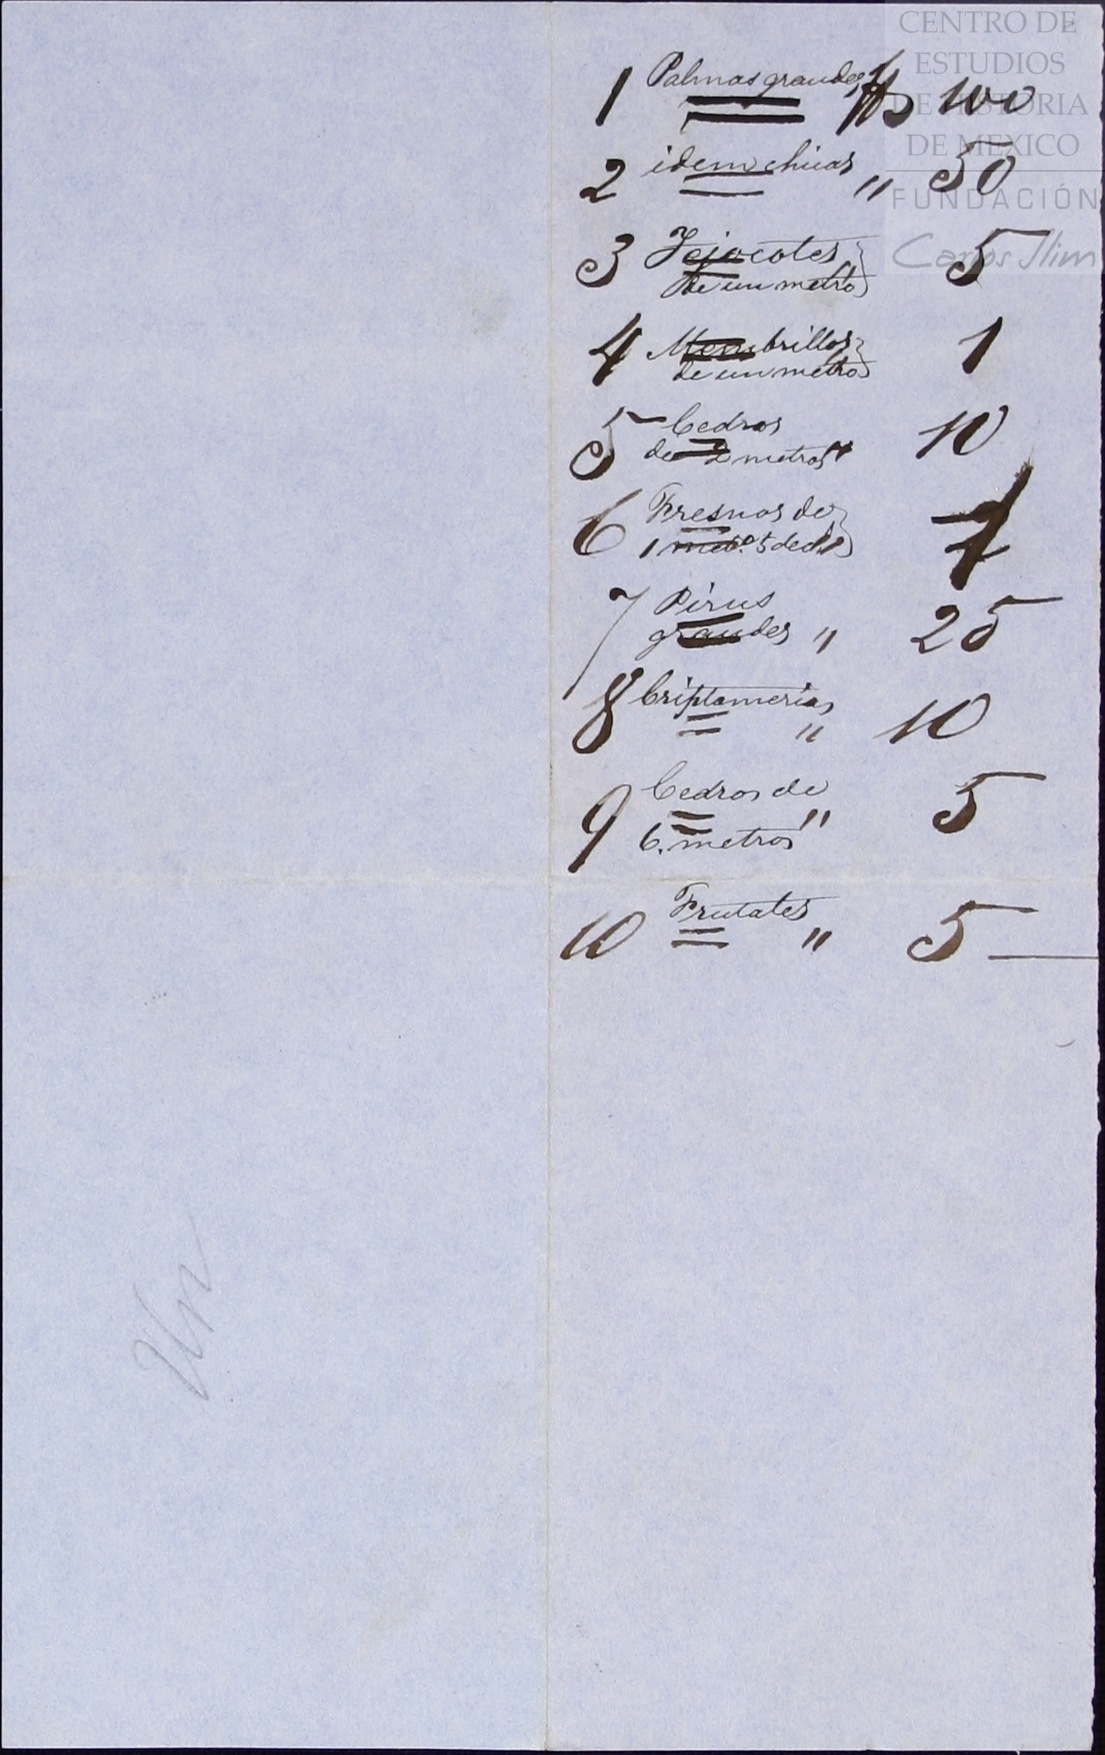 CENTRO DE
ESTUDIOS
DE HISTORIA
DE MEXICO
FUNDACIÓN
Carlos Slim
1 Palmas grandes $ 100
2 idem chicas " 50
3 Tejocotes 5
de un metro
4 Membrillos 1
de un metro
5 Cedros 10
de 2 metros
6 Fresnos de
1 met.o 5 dec.
7 Pirus
grandes " 25
8 Criptomerias
" 10
9 Cedros de " 5
6. metros
10 Frutales
" 5
Un